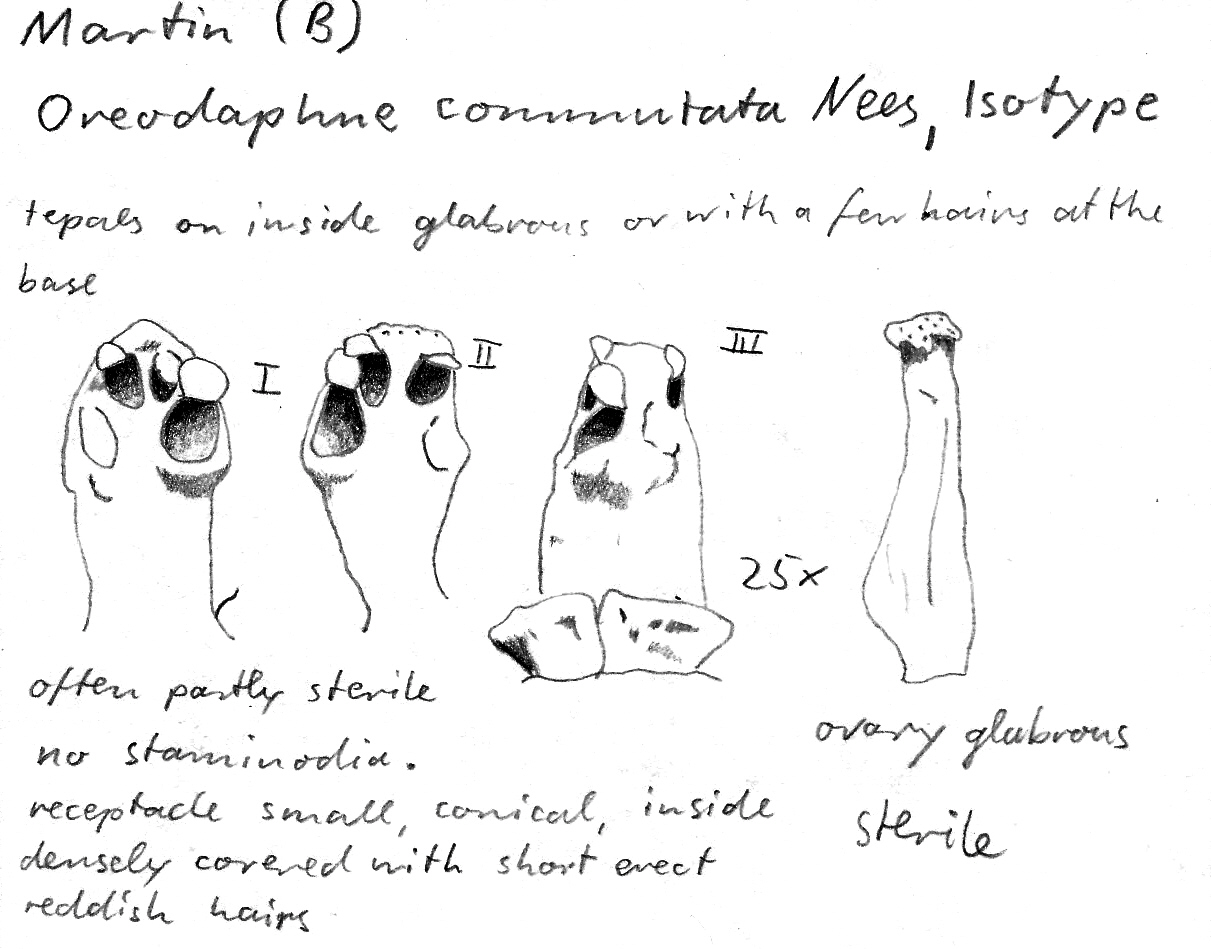 Martin (B)
Oreodaphne commutata Nees, Isotype
tepals on inside glabrous or with a few hairs at the
base
I
II
III
25x
often partly sterile
no staminodia.
receptacle small, conical, inside
densely covered with short erect
reddish hairs
ovary glabrous
sterile